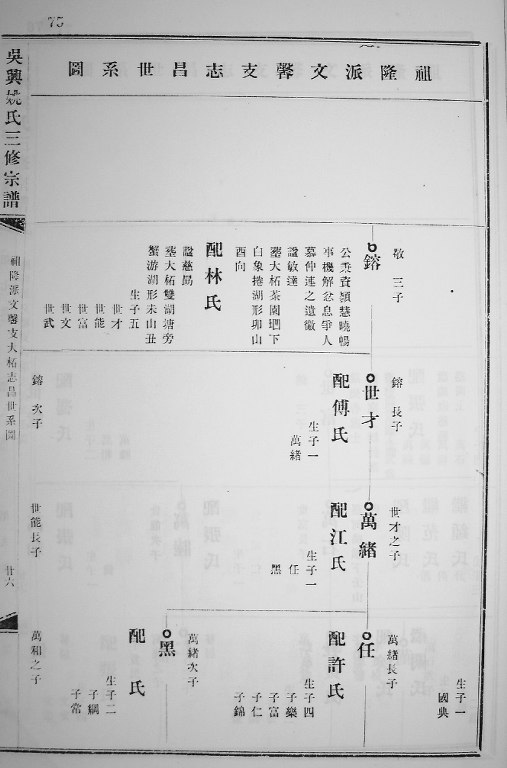 75
祖隆派文馨支志昌世系圖
吳興姚氏三修宗譜
祖隆派文馨支大柘志昌世系圖
廿六
敬三子
鎔
公秉資穎慧曉暢
事機解忿息爭人
慕仲連之遺徽
諡敏達
塟大柘茶園堋下
白象捲湖形卯山
酉向
配林氏
諡慈勗
塟大柘雙湖塘旁
蟹游湖形未山丑
生子五
世才
世能
世富
世文
世武
鎔長子
世才
配傅氏
生子一
萬緒
鎔次子
世才之子
萬緒
配江氏
生子一
任
黑
世能長子
生子一
國典
萬緒長子
任
配許氏
生子四
子樂
子富
子仁
子錦
萬緒次子
黑
配 氏
生子二
子綱
子常
萬和之子